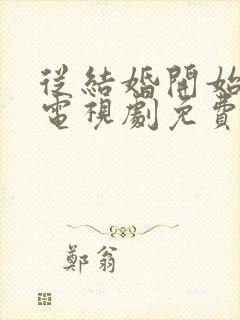 從結婚開始
電視劇免費
鄭翁